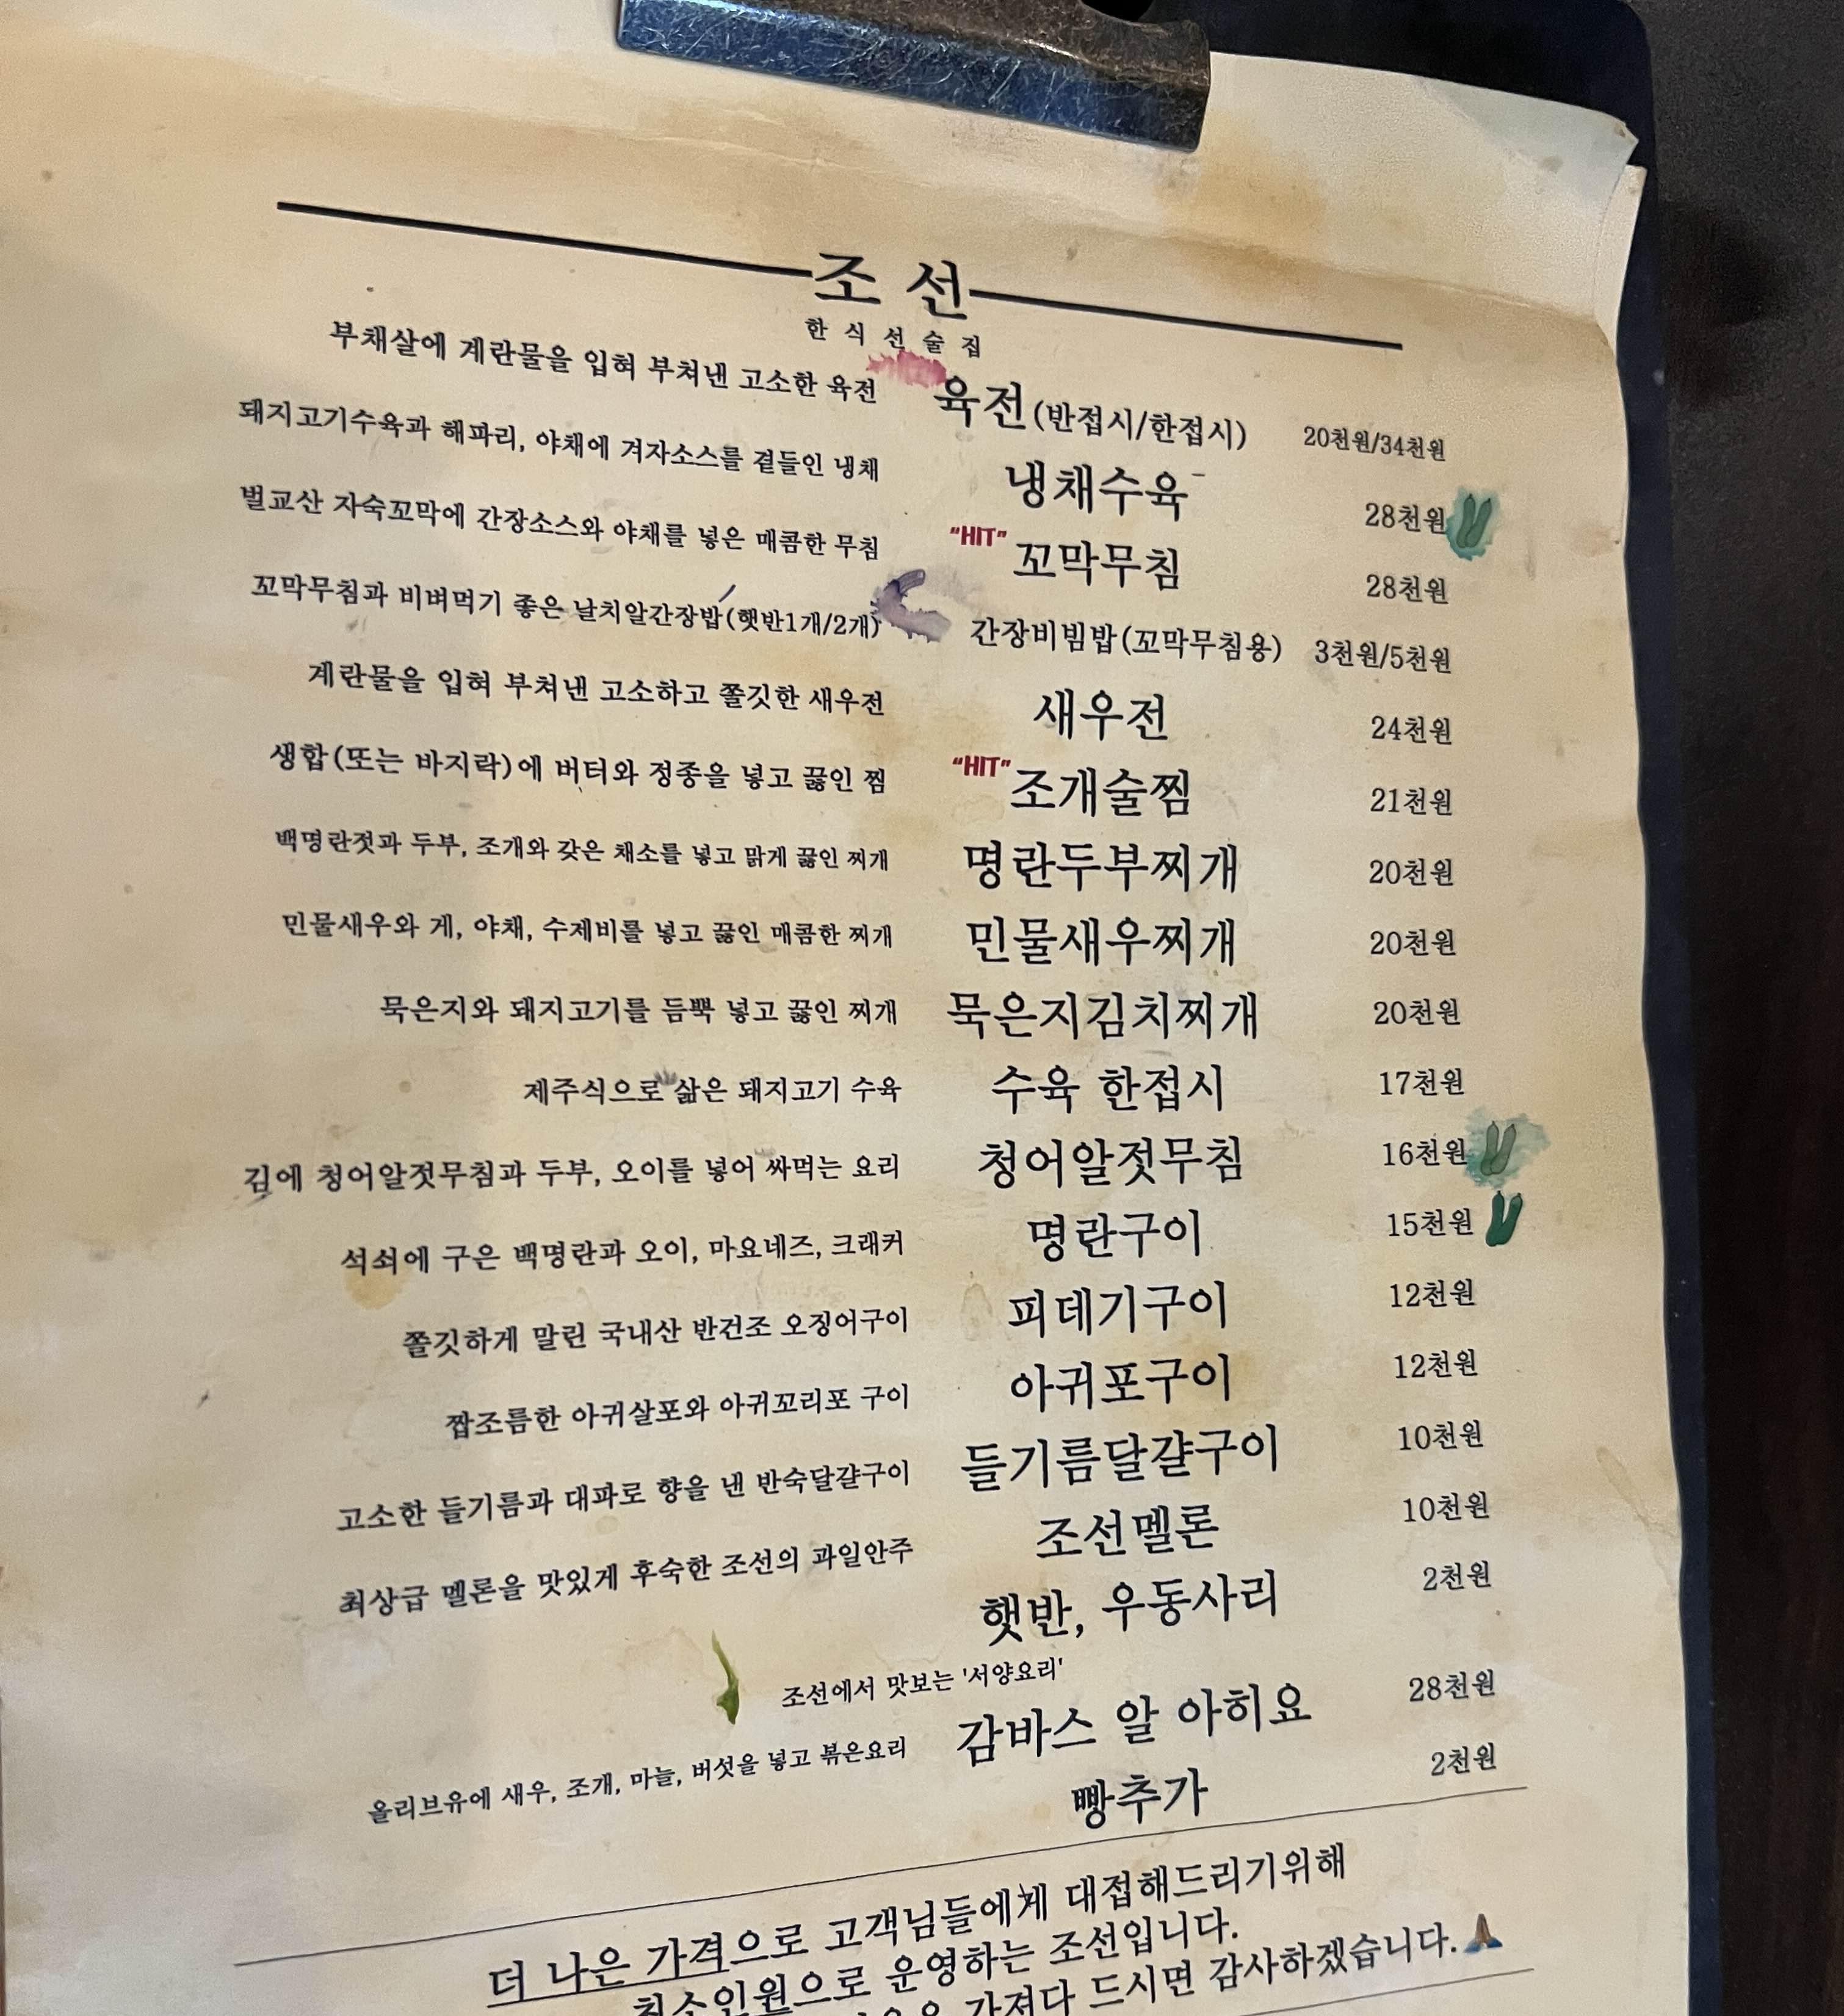 조선
한식선술집
부채살에 계란물을 입혀 부쳐낸 고소한 육전 육전(반접시/한접시) 20천원/34천원
돼지고기수육과 해파리, 야채에 겨자소스를 곁들인 냉채 냉채수육 28천원
벌교산 자숙꼬막에 간장소스와 야채를 넣은 매콤한 무침 "HIT" 꼬막무침 28천원
꼬막무침과 비벼먹기 좋은 날치알간장밥(햇반1개/2개) 간장비빔밥(꼬막무침용) 3천원/5천원
계란물을 입혀 부쳐낸 고소하고 쫄깃한 새우전 새우전 24천원
생합(또는 바지락)에 버터와 정종을 넣고 끓인 찜 "HIT" 조개술찜 21천원
백명란젓과 두부, 조개와 갖은 채소를 넣고 맑게 끓인 찌개 명란두부찌개 20천원
민물새우와 게, 야채, 수제비를 넣고 끓인 매콤한 찌개 민물새우찌개 20천원
묵은지와 돼지고기를 듬뿍 넣고 끓인 찌개 묵은지김치찌개 20천원
제주식으로 삶은 돼지고기 수육 수육 한접시 17천원
김에 청어알젓무침과 두부, 오이를 넣어 싸먹는 요리 청어알젓무침 16천원
석쇠에 구은 백명란과 오이, 마요네즈, 크래커 명란구이 15천원
쫄깃하게 말린 국내산 반건조 오징어구이 피데기구이 12천원
짭조름한 아귀살포와 아귀꼬리포 구이 아귀포구이 12천원
고소한 들기름과 대파로 향을 낸 반숙달걀구이 들기름달걀구이 10천원
최상급 멜론을 맛있게 후숙한 조선의 과일안주 조선멜론 10천원
햇반, 우동사리 2천원
조선에서 맛보는 '서양요리'
올리브유에 새우, 조개, 마늘, 버섯을 넣고 볶은요리 감바스 알 아히요 28천원
빵추가 2천원
더 나은 가격으로 고객님들에게 대접해드리기위해
최소인원으로 운영하는 조선입니다.
가져다 드시면 감사하겠습니다.🙏